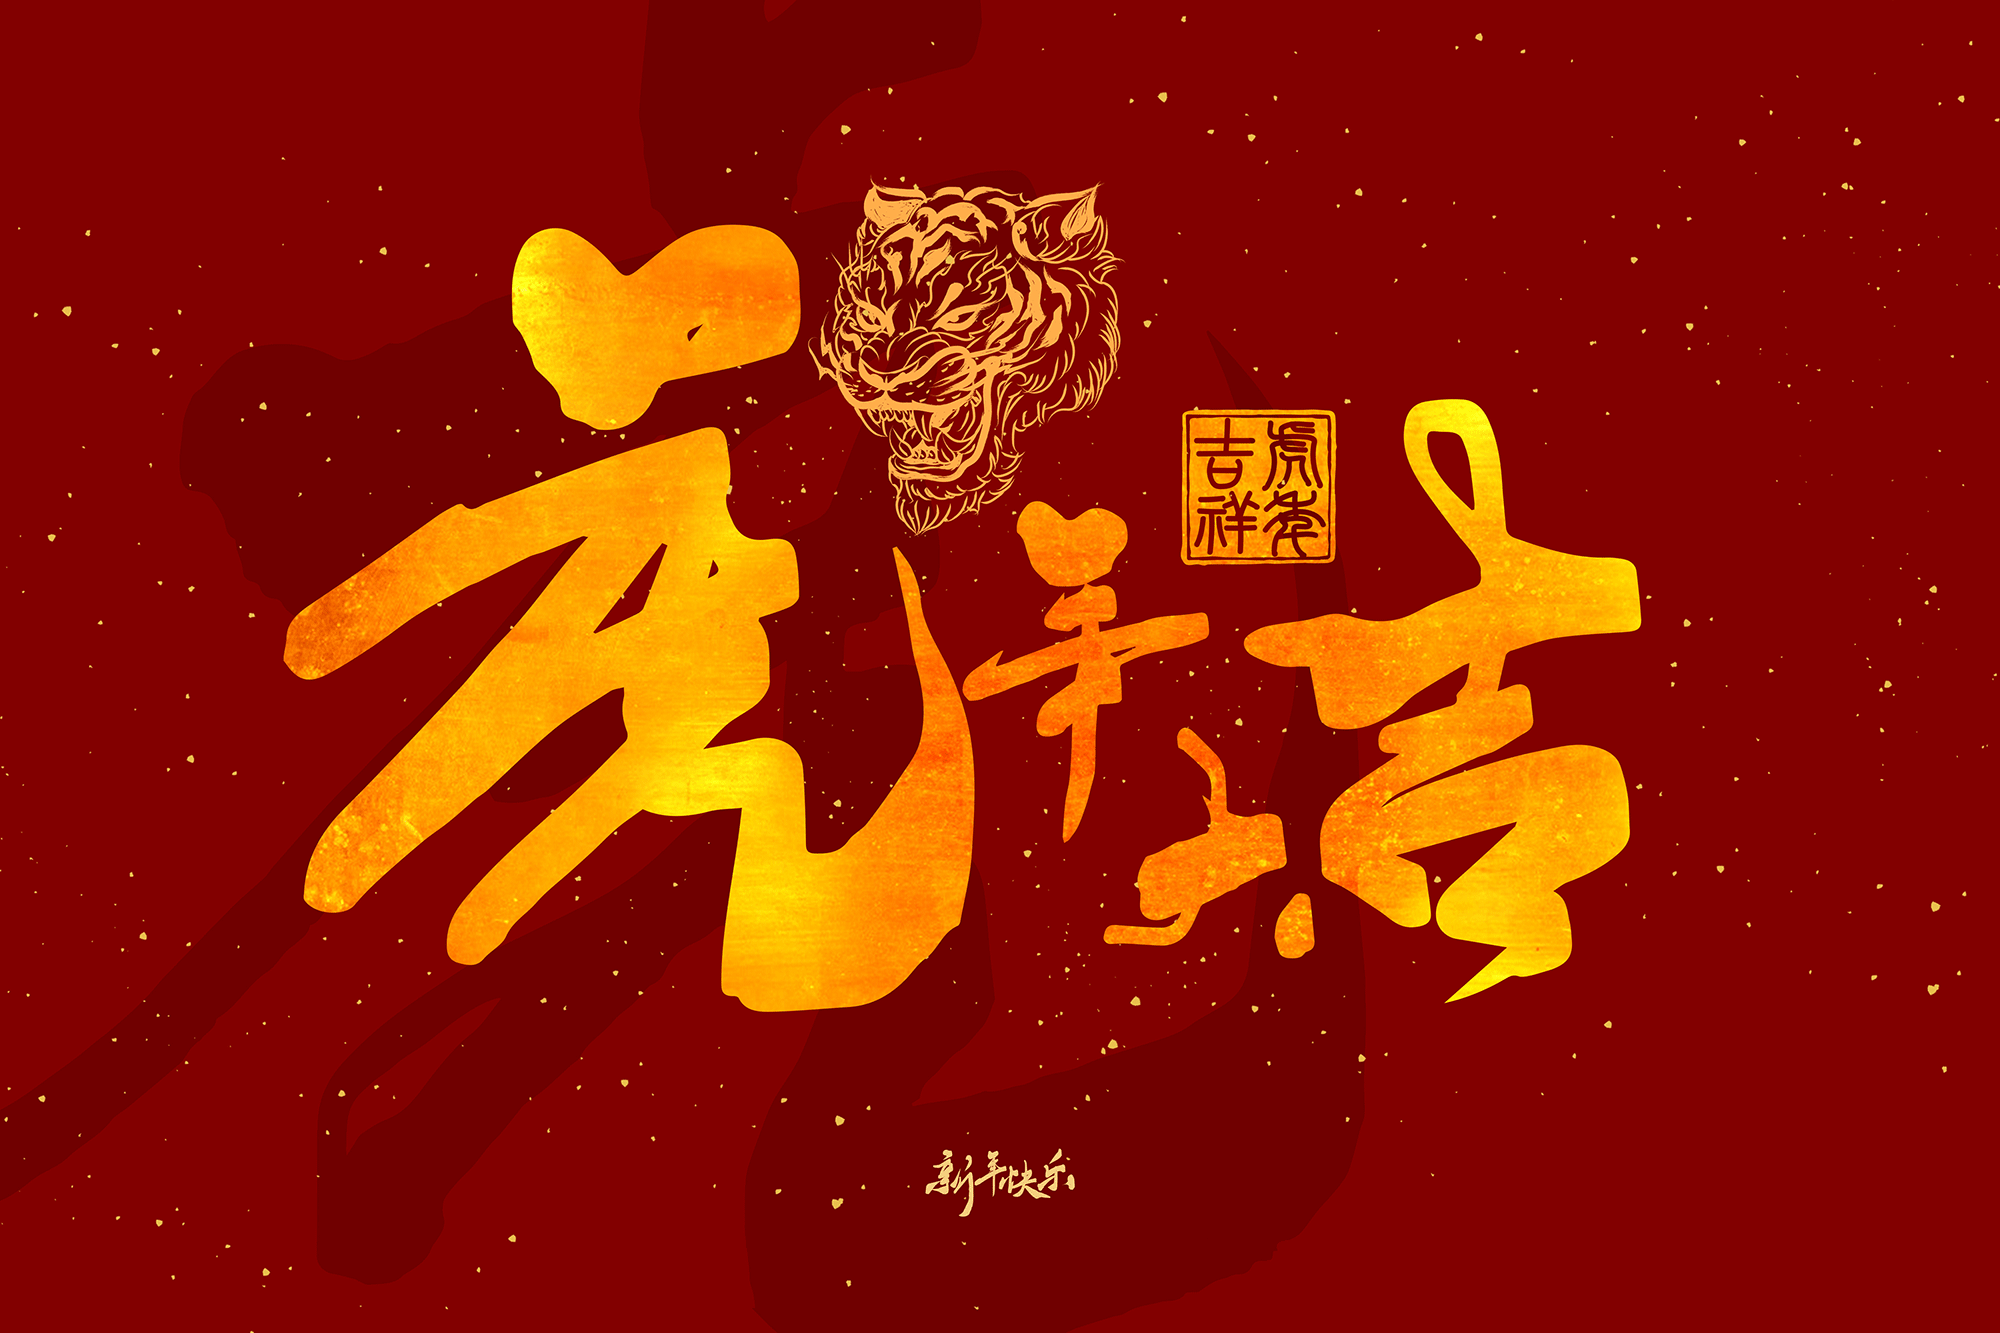 虎年大吉
虎年
吉祥
新年快乐